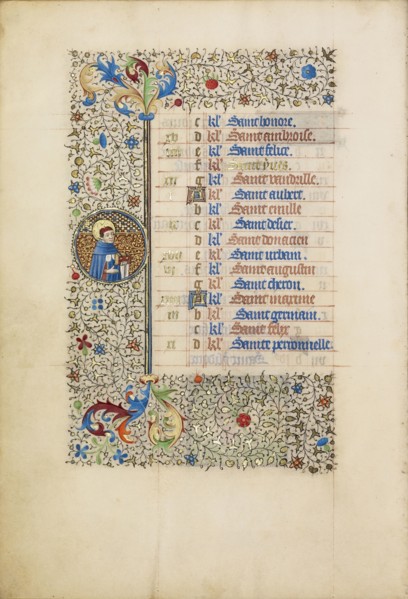 c kl' Saint honore.
d kl' Saint ambroise.
e kl' Saint felice.
f kl' Saint yves.
g kl' Saint vandrille.
A kl' Saint aubert.
b kl' Saint emille
c kl' Saint desier.
d kl' Saint donacien
e kl' Saint urbain.
f kl' Saint augustin
g kl' Saint cheron.
A kl' Saint maxime
b kl' Saint germain.
c kl' Saint felix
d kl' Sainte peronnelle.